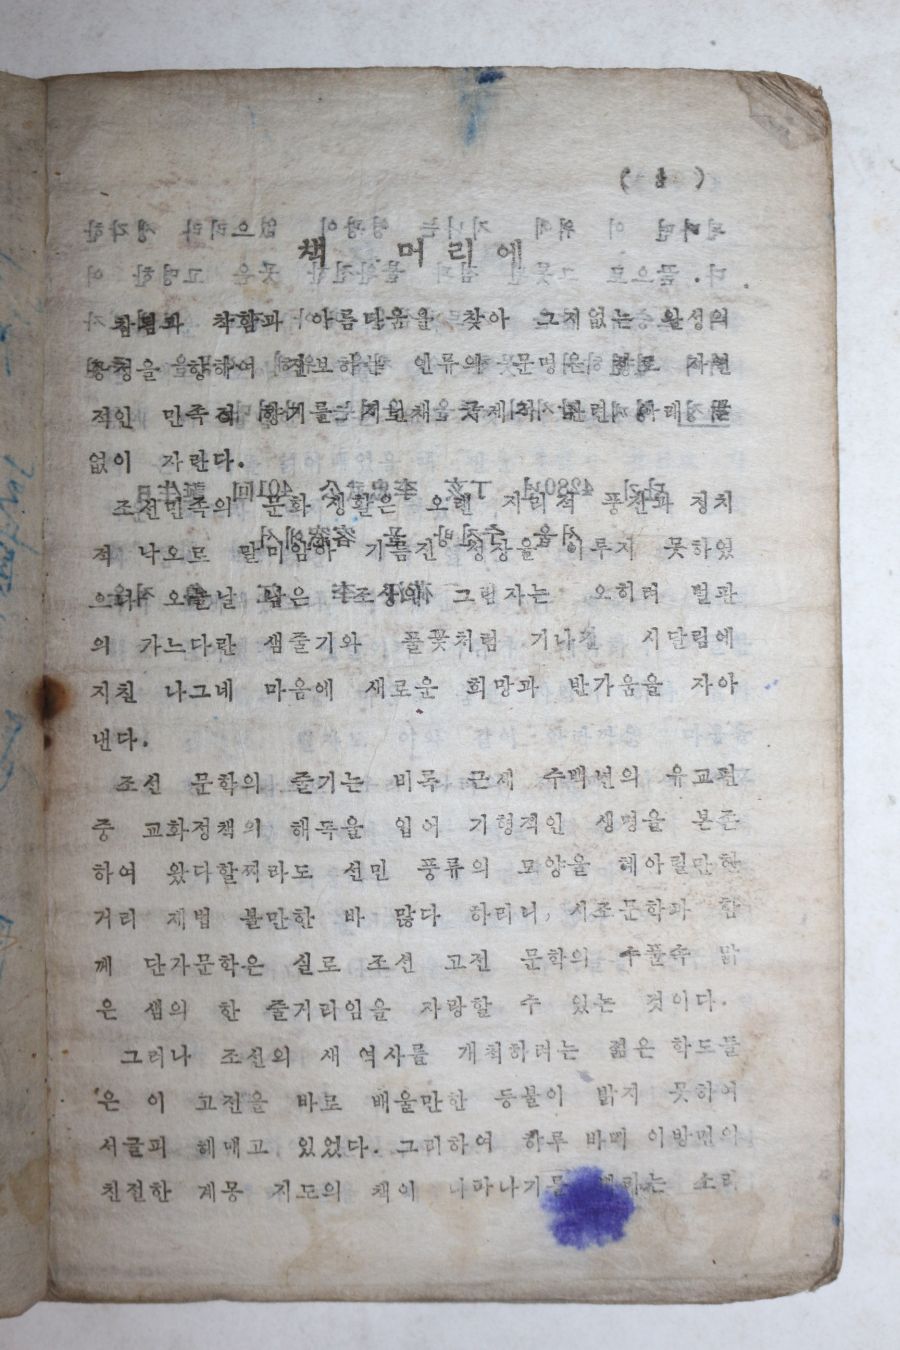 책 머리에
착함과 아름다움을 찾아 그지없는 완성의
향하여 진보하는 인류의 문명은
적인 민족의 향기를 지닌채
없이 자란다.
조선민족의 문화 생활은 오랜 지리적 풍산과 정치
적 낙오로 말미암아 기름진 성장을 이루지 못하였
으나 오늘날 남은 조상의 그림자는 오히려 벌판
의 가느다란 샘줄기와 풀꽃처럼 기나긴 시달림에
지친 나그네 마음에 새로운 희망과 반가움을 자아
낸다.
조선 문학의 줄기는 비록 근세 수백년의 유교편
중 교화정책의 해독을 입어 기형적인 생명을 본존
하여 왔다할찌라도 선민 풍류의 모양을 헤아릴만한
거리 제법 볼만한 바 많다 하려니, 시조문학과 함
께 단가문학은 실로 조선 고전 문학의 수풀속 맑
은 샘의 한 줄거리임을 자랑할 수 있는 것이다.
그러나 조선의 새 역사를 개척하려는 젊은 학도들
은 이 고전을 바로 배울만한 등불이 밝지 못하여
서글피 헤매고 있었다. 그리하여 하루 바삐 이방면의
친절한 계몽 지도의 책이 나타나기를 소리